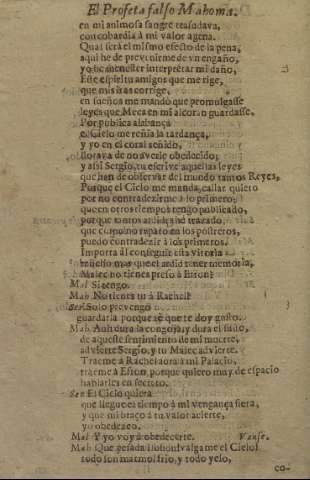 El Profeta falso Mahoma.
en mi animosa sangre trasudava,
con cobardia à mi valor agena.
Qual serà el mismo efecto de la pena,
aqui he de prevenirme de vn engaño,
yo he menester interpretar mi daño,
Este espiritu amigos que me rige,
que mis iras corrige,
en sueños me mandò que promulgasse
leyes que Meca en mi alcoran guardasse.
Por publica alabança
el Cielo me reñia la tardança,
y yo en el coral teñido,
llorava de no averle obedecido;
y assi Sergio, tu escrive aquellas leyes
que han de observar del mundo tantos Reyes,
Porque el Cielo me manda, callar quiero
por no contradezirme à lo primero;
que en otros tiempos tengo publicado,
por que to
que como no reparo en los postreros,
puedo contradezir à los primeros.
Importa al conseguir esta vitoria
mas que el ardid tener memoria,
Malec no tienes preso à Eston?
Mal Si tengo.
Mah No tienes tu à Rachel?
Ser Solo prevengo
guardarla porque sè que te doy gusto.
Mah Aun dura la congoja, y dura el susto,
de aqueste sentimiento de mi muerte,
advierte Sergio, y tu Malec advierte.
Traeme à Rachel aora à mi Palacio,
traeme à Eston, porque quiero muy de espacio
hablarles en secreto.
Ser El Cielo quiera
que llegue el tiempo à mi vengança fiera,
y que mi braço à tu valor acierte,
yo obedezco.
Mal Y yo voy à obedecerte. Vanse.
Mah Que pesada ilusion! valgame el Cielo!
todo son marmol frio, y todo yelo,
co-